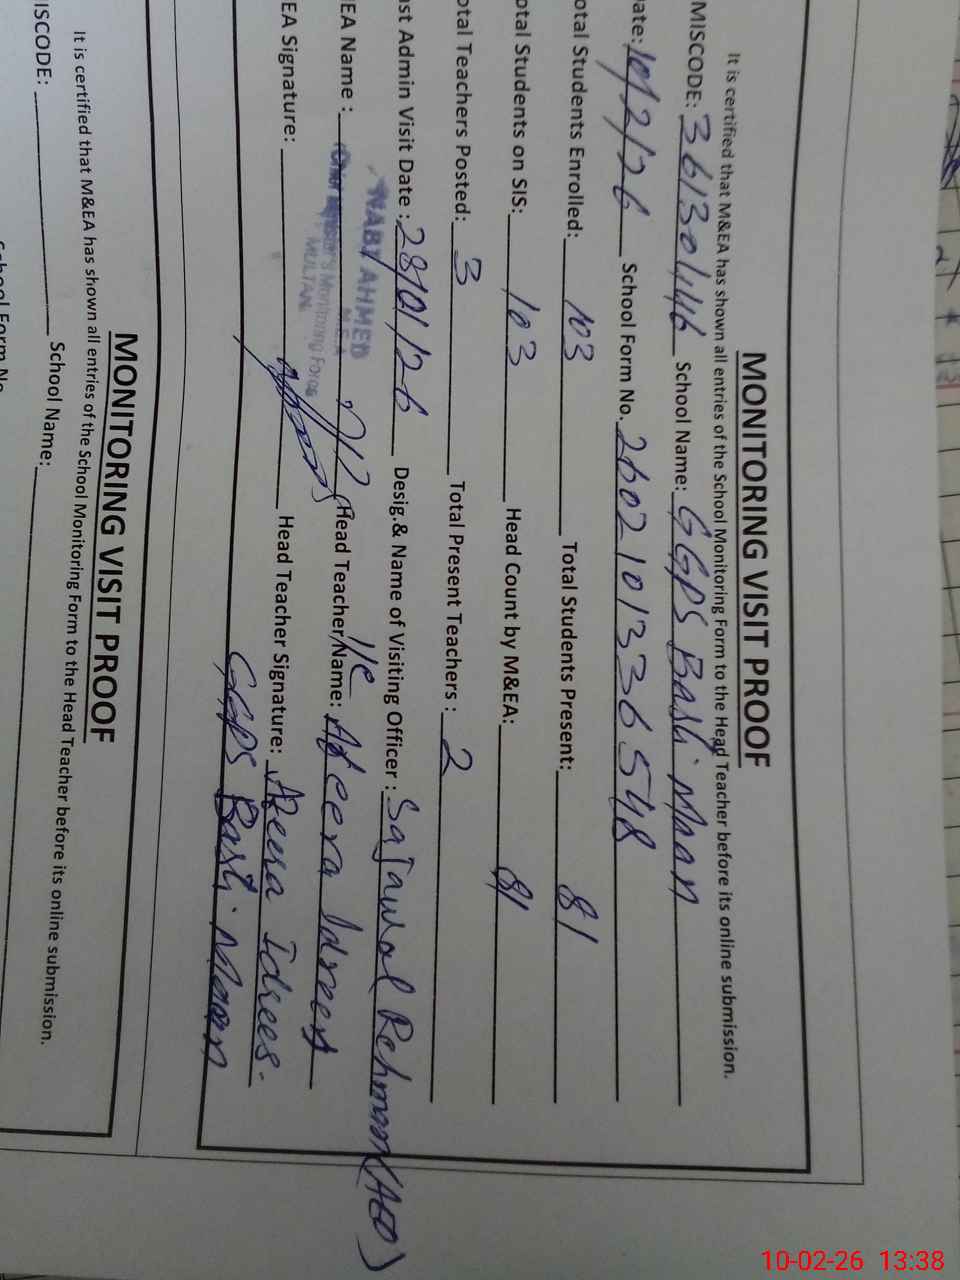 MONITORING VISIT PROOF
It is certified that M&EA has shown all entries of the School Monitoring Form to the Head Teacher before its online submission.
MISCODE: 36130146 School Name: GGPS Basti Maan
Date: 10/2/26 School Form No. 26021013365 48
otal Students Enrolled: 103 Total Students Present: 81
otal Students on SIS: 103 Head Count by M&EA: 81
otal Teachers Posted: 3 Total Present Teachers : 2
st Admin Visit Date : 28/01/26 Desig.& Name of Visiting Officer : Sajawal Rehman (AEO)
NABI AHMED
M.E.A
Monitoring Force
MULTAN
EA Name : Head Teacher Name: I/C Areera Idrees
EA Signature: Head Teacher Signature: Areera Idrees.
GGPS Basti Maan
MONITORING VISIT PROOF
It is certified that M&EA has shown all entries of the School Monitoring Form to the Head Teacher before its online submission.
ISCODE: School Name:
School Form No
10-02-26 13:38